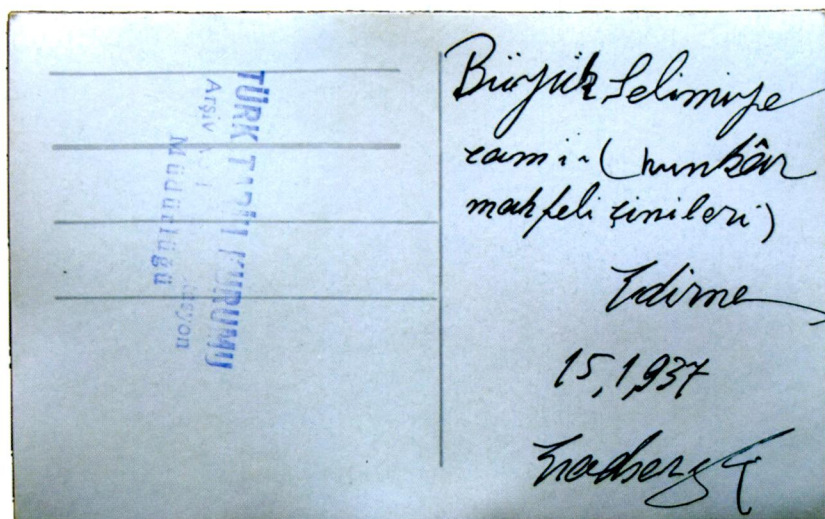 TÜRK TARİH KURUMU
Arşiv
Müdürlüğü
Büyük Selimiye
cami-(hunkâr
mahfeli çinileri)
Edirne
15,1,937